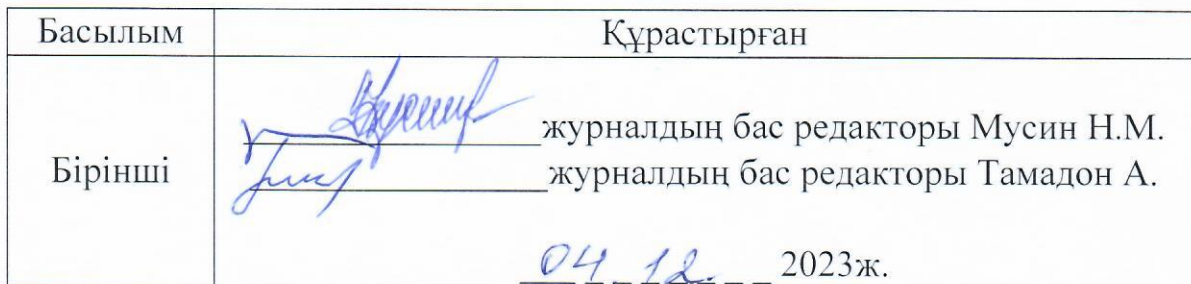 Басылым Құрастырған
журналдың бас редакторы Мусин Н.М.
Бірінші
журналдың бас редакторы Тамадон А.
04 12. 2023ж.